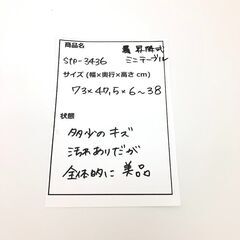 商品名
昇降式
stp-3436 ミニテーブル
サイズ (幅×奥行×高さ cm)
73×47,5×6~38
状態
多少のキズ
汚れありだが
全体的に美品